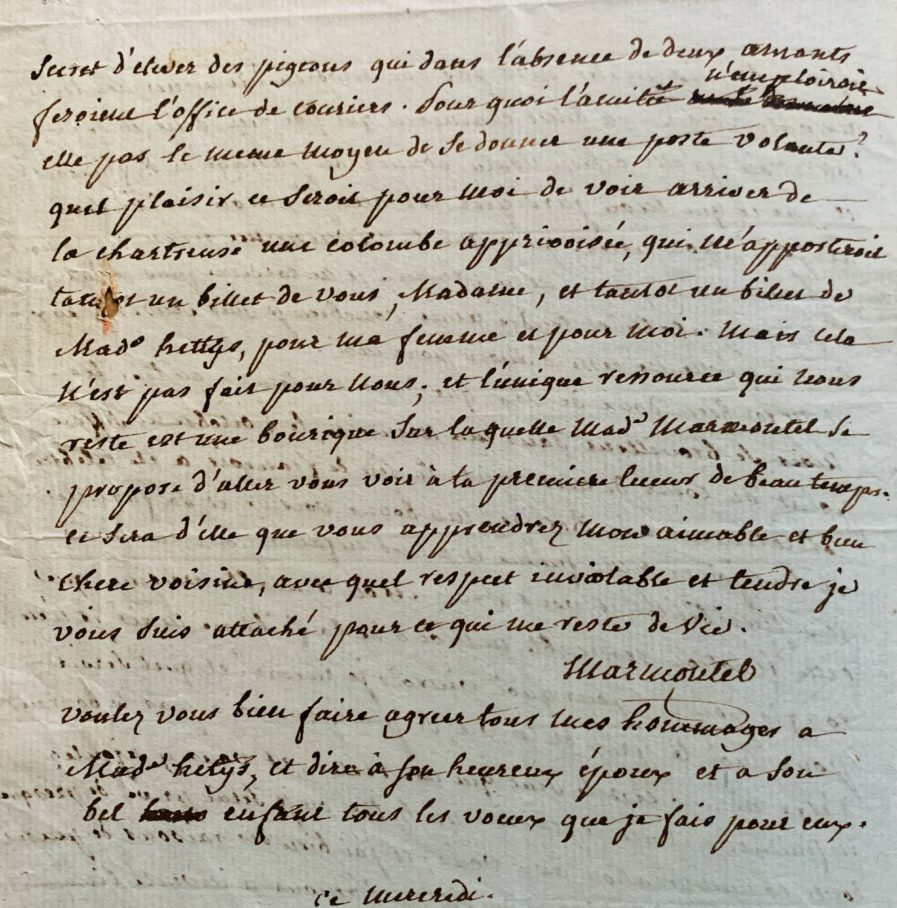 secret d'elever des pigeons qui dans l'absence de deux amants
feroient l'office de couriers. Pour quoi l'amitié n'emploiroit
elle pas le meme moyen de se donner une poste volante?
quel plaisir ce seroit pour moi de voir arriver de
la chartreuse une colombe apprivoisée, qui m'apporteroit
tantot un billet de vous, Madame, et tantot un billet de
Made hettys, pour ma femme et pour moi. Mais cela
n'est pas fait pour nous; et l'unique ressource qui nous
reste est une bourique sur la quelle Made Marmontel se
propose d'aller vous voir à la premiere lueur de beau temps.
ce sera d'elle que vous apprendrez mon aimable et bien
chere voisine, avec quel respect inviolable et tendre je
vous suis attaché pour ce qui me reste de vie.
Marmontel
voulez vous bien faire agreer tous mes hommages a
Made hetys, et dire à son heureux époux et a son
bel enfant tous les voeux que je fais pour eux.
ce mercredi.